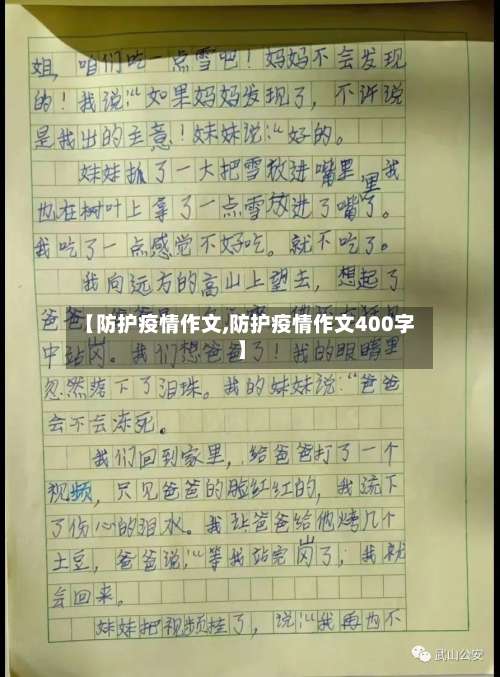 姐，咱们吃一点雪吧！妈妈不会发现
的！我说：“如果妈妈发现了，不许说
是我出的主意！妹妹说：“好的。
妹妹抓了一大把雪放进嘴里，我
也在树叶上拿了一点雪放进了嘴里。
我吃了一点感觉不好吃。就不吃了。
我向远方的高山上望去，想起了
爸爸
【防护疫情作文,防护疫情作文400字
】
中站岗。我们想爸爸了！我的眼睛里
忽然落下了泪珠。我的妹妹说：“爸爸
会不会冻死。
我们回到家里，给爸爸打了一个
视频，只见爸爸的脸红红的，我流下
了伤心的泪水。我让爸爸给他烤几个
土豆，爸爸说：“等我站完岗了，我就
会回来。
妹妹把视频挂了，说：“我再也不
武山公安